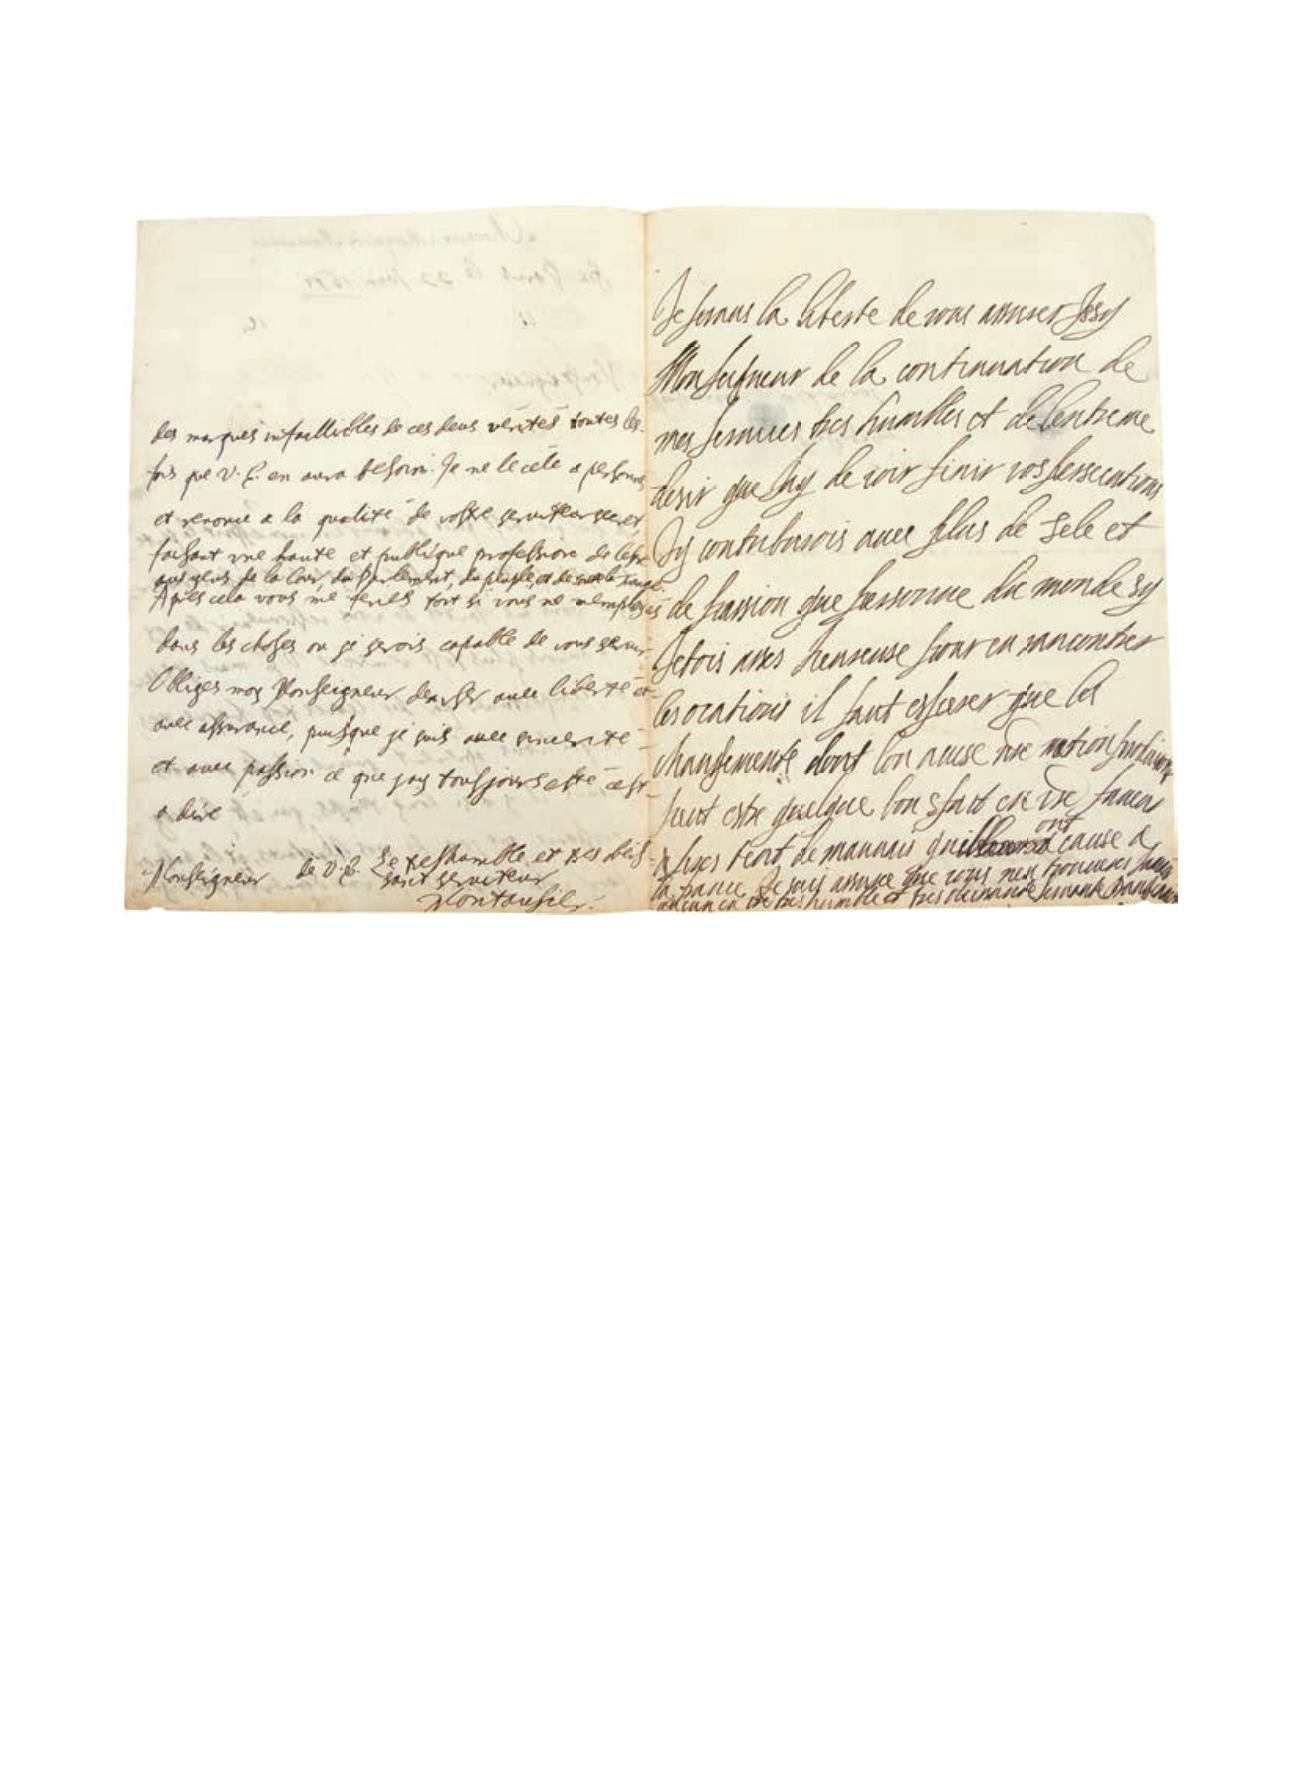 des marques infaillibles de ces deus vérités toutes les
fois que V. E. en aura besoin. Je ne le cele a personne
et renonce a la qualité de vostre serviteur secret,
faisant une haute et publique profession de l'estre
aus yeus de la Cour, du Parlement, du peuple, et de
Après cela vous me feriés tort si vous ne m'employés
dans les choses ou je serois capable de vous servir
Obligés moy Monseigneur d'en user avec liberté et
avec assurance, puisque je suis avec sincerité
et avec passion ce que jay tousjours esté c'est
a dire
Monseigneur de V. E. Le tres humble et tres obeis
sant serviteur
Montausier.
Je prans la liberte de vous assurer Issy
Monseigneur de la continuation de
mes servises tres humbles et de lentreme
desir que Jay de voir finir vos persecutions
Jy contriburois avec plus de sele et
de passion que personne du monde sy
Jetois asses heureuse pour en rancontrer
les ocations il faut esperer que les
changements dont lon acuse nre nation
faict de mauvais cause a
la france Je suis assuree que vous nen trouveres Jamais
aucun en vre tres humble et tres servante